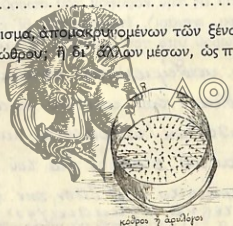 ισμα, ἀπομακρυνομένων τῶν ξένω
ώθρου; ἢ δι᾽ ἄλλων μέσων, ὡς π
κόθρος ἢ ἀριλόγος